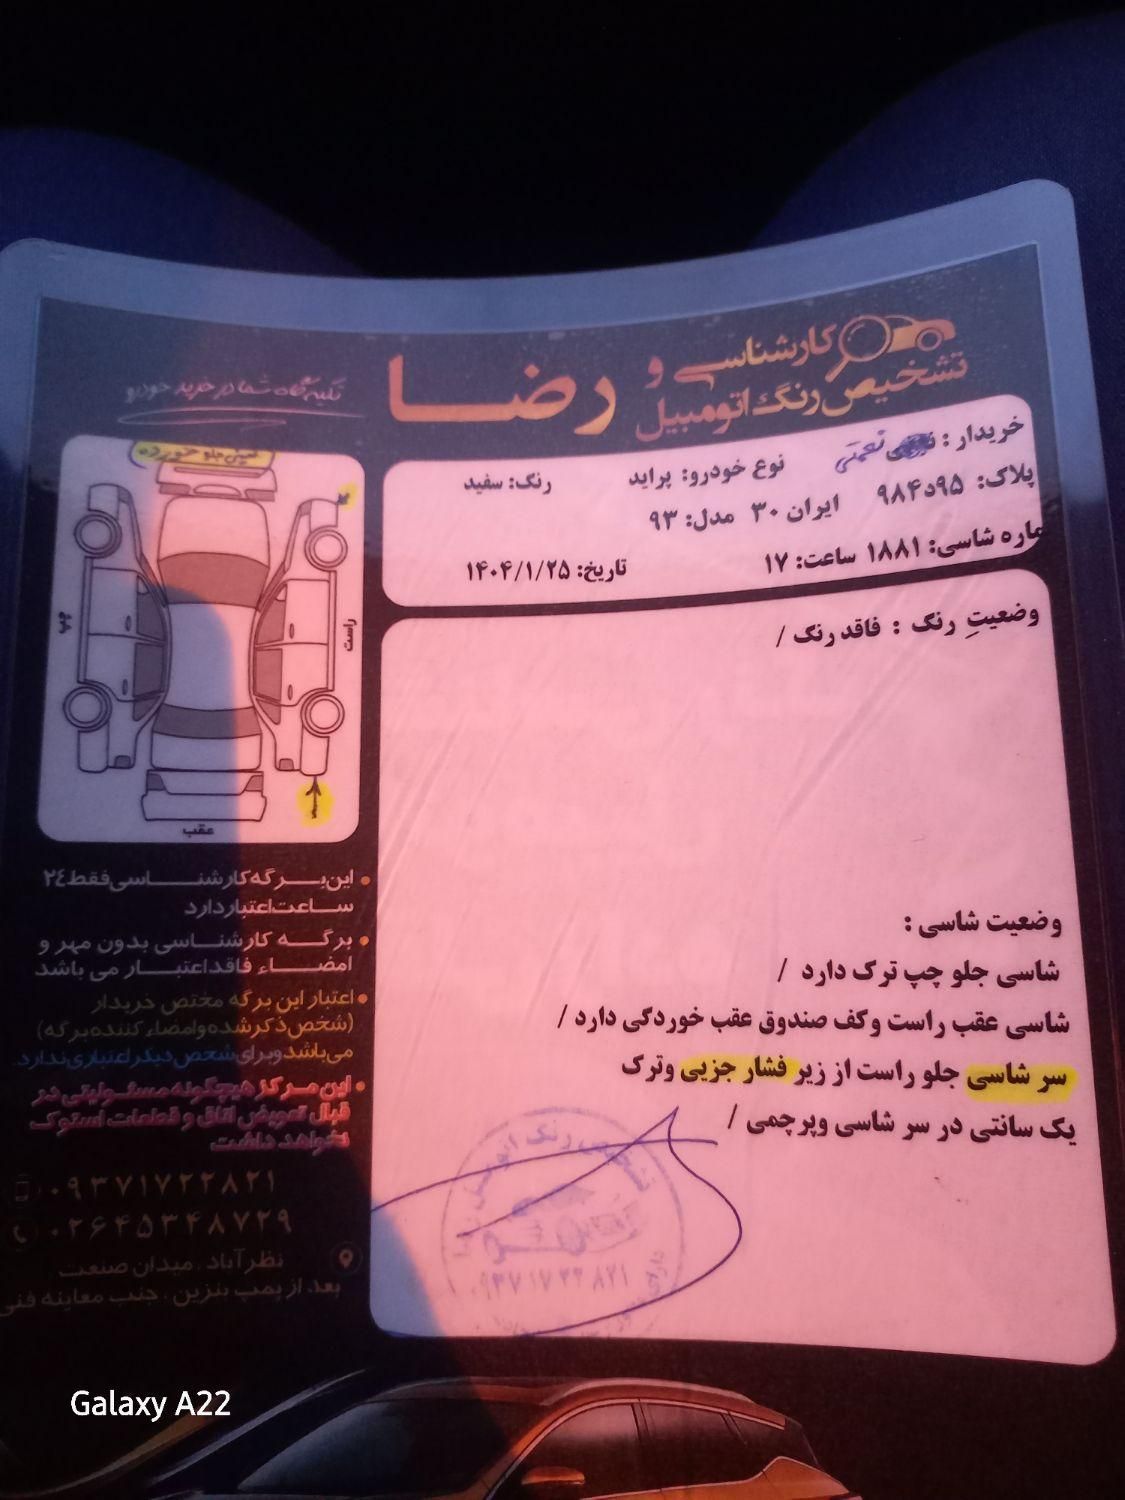 کارشناسی و
تشخیص رنگ اتومبیل
رضا
تکیه گاه شما در خرید خودرو
خریدار : نعمتی
نوع خودرو: پراید
رنگ: سفید
پلاک: ۹۵د۹۸۴ ایران ۳۰ مدل: ۹۳
ماره شاسی: ۱۸۸۱ ساعت: ۱۷
تاریخ: ۱۴۰۴/۱/۲۵
سینی جلو خورده
چپ
راست
عقب
وضعیتِ رنگ : فاقد رنگ /
وضعیت شاسی :
شاسی جلو چپ ترک دارد /
شاسی عقب راست وکف صندوق عقب خوردگی دارد /
سر شاسی جلو راست از زیر فشار جزیی وترک
یک سانتی در سر شاسی وپرچمی /
این برگه کارشناسی فقط ۲٤
ساعت اعتبار دارد
برگه کارشناسی بدون مهر و
امضاء فاقد اعتبار می باشد
اعتبار این برگه مختص خریدار
(شخص ذکر شده و امضاء کننده برگه)
می باشد و برای شخص دیگر اعتباری ندارد.
این مرکز هیچگونه مسئولیتی در
قبال تعویض اتاق و قطعات استوک
نخواهد داشت
۰۹۳۷۱۷۲۲۸۲۱
۰۲۶۴۵۳۴۸۷۲۹
نظرآباد . میدان صنعت
بعد از پمپ بنزین . جنب معاینه فنی
تشخیص رنگ اتومبیل رضا
Galaxy A22